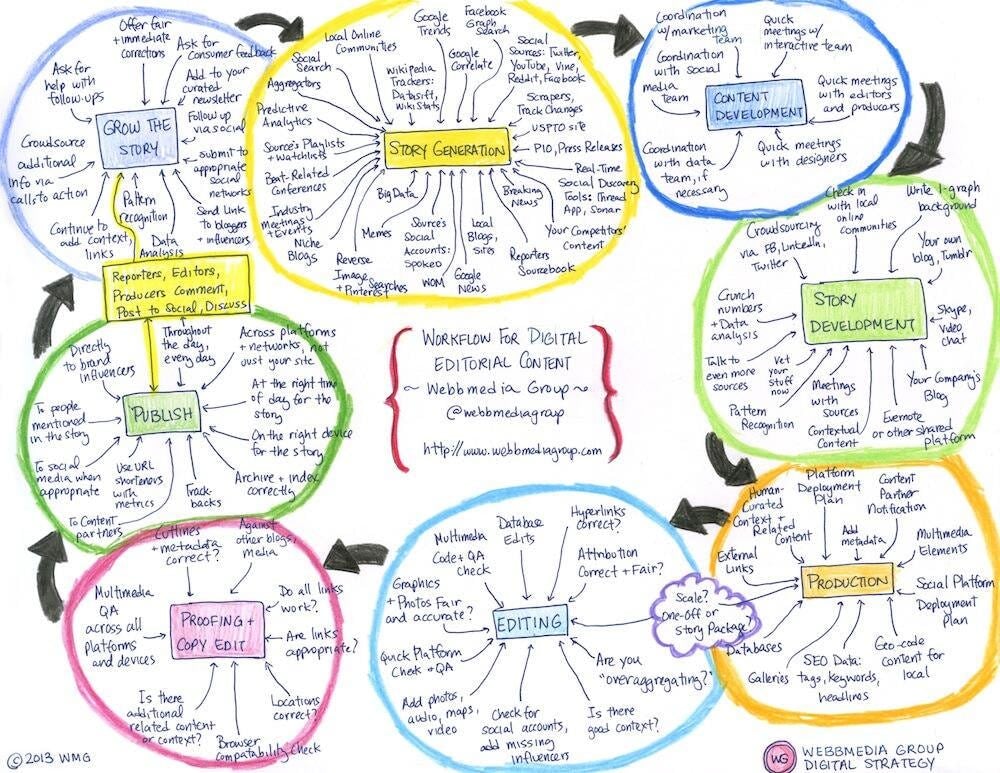 Offer fair
+ immediate
corrections
Ask for
Consumer feedback
Ask for
help with
follow-ups
Add to your
curated
newsletter
Follow up
via social
GROW THE
STORY
Crowdsource
additional
info via
calls to action
submit to
appropriate
social
networks
Pattern
recognition
Send link
to bloggers
+ influencers
Continue to
add context,
links
Data
Analysis
Local Online
Communities
Google
Trends
Facebook
Graph
Search
Social
Search
Aggregators
Wikipedia
Trackers:
Datasift,
WikiStats
Google
Correlate
Social
Sources: Twitter,
YouTube, Vine,
Reddit, Facebook
Predictive
Analytics
Scrapers,
Track Changes
Source's Playlists
+ Watchlists
STORY GENERATION
USPTO site
PIO, Press Releases
Beat-Related
Conferences
Real-Time
Social Discovery
Tools: Thread
App, Sonar
Industry
meetings
+ Events
Big Data
Breaking
News
Niche
Blogs
Memes
Source's
Social
Accounts:
Spokeo
Local
Blogs,
Sites
Your Competitors'
Content
Reverse
Image Searches
+ Pinterest
WOM
Google
News
Reporters
Sourcebook
Coordination
w/ marketing
team
Quick
meetings w/
interactive team
Coordination
with social
media
team
CONTENT
DEVELOPMENT
Quick meetings
with editors
and producers
Coordination
with data
team, if
necessary
Quick meetings
with designers
Crowdsourcing
via FB, LinkedIn,
Twitter
Check in
with local
online
communities
Write 1-graph
background
Your own
blog, Tumblr
Crunch
numbers
+ Data
analysis
STORY
DEVELOPMENT
Skype,
video
chat
Talk to
even more
sources
Vet
your
stuff
now
Meetings
with
sources
Your Company's
Blog
Pattern
Recognition
Contextual
Content
Evernote
or other shared
platform
Reporters, Editors,
Producers Comment,
Post to Social, Discuss
Directly
to brand
influencers
Throughout
the day,
every day
Across platforms
+ networks, not
just your site
At the right time
of day for the
story
PUBLISH
To people
mentioned
in the story
On the right device
for the story
To social
media when
appropriate
Use URL
shorteners
with
metrics
Track-
backs
Archive + index
correctly
To Content
partners
WORKFLOW FOR DIGITAL
EDITORIAL CONTENT
~ Webbmedia Group ~
@webbmediagroup
http://www.webbmediagroup.com
Human-
Curated
Context +
Related
Content
Platform
Deployment
Plan
Content
Partner
Notification
Add
metadata
Multimedia
Elements
External
Links
PRODUCTION
Social Platform
Deployment
plan
Scale?
one-off or
Story Package?
Databases
Galleries
SEO Data:
tags, keywords,
headlines
Geo-code
content for
local
Multimedia
Code + QA
Check
Database
Edits
Hyperlinks
correct?
Attribution
Correct + Fair?
Graphics
+ Photos Fair
and accurate?
EDITING
Quick Platform
Check + QA
Are you
"overaggregating?"
Add photos,
audio, maps,
video
Check for
social accounts,
add missing
influencers
Is there
good context?
Cutlines
+ metadata
correct?
Against
other blogs,
media
Multimedia
QA
across all
platforms
and devices
Do all links
work?
PROOFING +
COPY EDIT
Are links
appropriate?
Is there
additional
related content
or context?
Locations
correct?
Browser
Compatability Check
© 2013 WMG
WG
WEBBMEDIA GROUP
DIGITAL STRATEGY